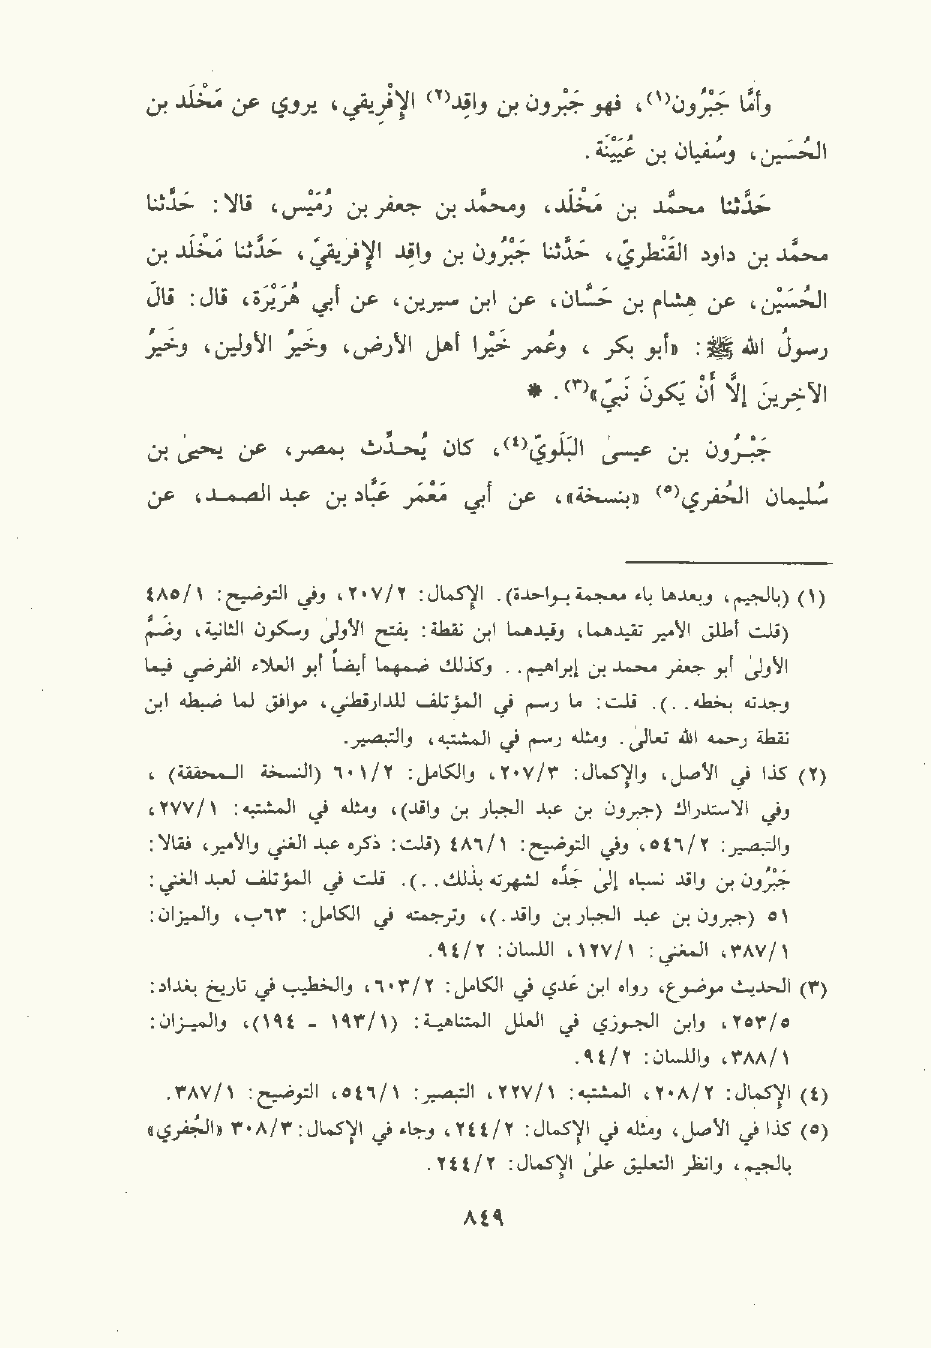 وأمَّا جَبْرُون⁽¹⁾، فهو جَبْرون بن واقِد⁽²⁾ الإفْريقي، يروي عن مَخْلَد بن
الحُسَين، وسُفيان بن عُيَيْنَة.
حَدَّثنا محمَّد بن مَخْلَد، ومحمَّد بن جعفر بن رُمَيْس، قالا: حَدَّثنا
محمَّد بن داود القَنْطريّ، حَدَّثنا جَبْرُون بن واقِد الإفريقيّ، حَدَّثنا مَخْلَد بن
الحُسَيْن، عن هِشام بن حَسَّان، عن ابن سيرين، عن أبي هُرَيْرَة، قال: قالَ
رسولُ الله ﷺ: «أبو بكر ، وعُمر خَيْرا أهل الأرض، وخَيرُ الأولين، وخَيرُ
الآخِرِينَ إلَّا أنْ يَكونَ نَبيّ»⁽³⁾. *
جَبْـرُون بن عيسىٰ البَلَويّ⁽⁴⁾، كان يُحـدِّث بمصر، عن يحيىٰ بن
سُليمان الحُفري⁽⁵⁾ «بنسخة»، عن أبي مَعْمَر عَبَّاد بن عبد الصمـد، عن
(١) (بالجيم، وبعدها باء معجمة بـواحدة). الإكمال: ٢٠٧/٢، وفي التوضيح: ٤٨٥/١
(قلت أطلق الأمير تقيدهما، وقيدهما ابن نقطة: بفتح الأولىٰ وسكون الثانية، وضَـمَّ
الأولىٰ أبو جعفر محمد بن إبراهيم. . وكذلك ضمهما أيضاً أبو العلاء الفرضي فيما
وجدته بخطه. .). قلت: ما رسم في المؤتلف للدارقطني، موافق لما ضبطه ابن
نقطة رحمه الله تعالىٰ. ومثله رسم في المشتبه، والتبصير.
(٢) كذا في الأصل، والإكمال: ٢٠٧/٣، والكامل: ٦٠١/٢ (النسخة المحققة) ،
وفي الاستدراك (جبرون بن عبد الجبار بن واقد)، ومثله في المشتبه: ٢٧٧/١،
والتبصير: ٥٤٦/٢، وفي التوضيح: ٤٨٦/١ (قلت: ذكره عبد الغني والأمير، فقالا:
جَبْرُون بن واقد نسباه إلىٰ جَدِّه لشهرته بذلك. .). قلت في المؤتلف لعبد الغني:
٥١ (جبرون بن عبد الجبار بن واقد.)، وترجمته في الكامل: ٦٣ب، والميزان:
٣٨٧/١، المغني: ١٢٧/١، اللسان: ٩٤/٢.
(٣) الحديث موضوع، رواه ابن عَدي في الكامل: ٦٠٣/٢، والخطيب في تاريخ بغداد:
٢٥٣/٥، وابن الجـوزي في العلل المتناهيـة: (١٩٣/١ - ١٩٤)، والميـزان:
٣٨٨/١، واللسان: ٩٤/٢.
(٤) الإكمال: ٢٠٨/٢، المشتبه: ٢٢٧/١، التبصير: ٥٤٦/١، التوضيح: ٣٨٧/١.
(٥) كذا في الأصل، ومثله في الإكمال: ٢٤٤/٢، وجاء في الإكمال: ٣٠٨/٣ «الجُفري»
بالجيم، وانظر التعليق علىٰ الإكمال: ٢٤٤/٢.
٨٤٩